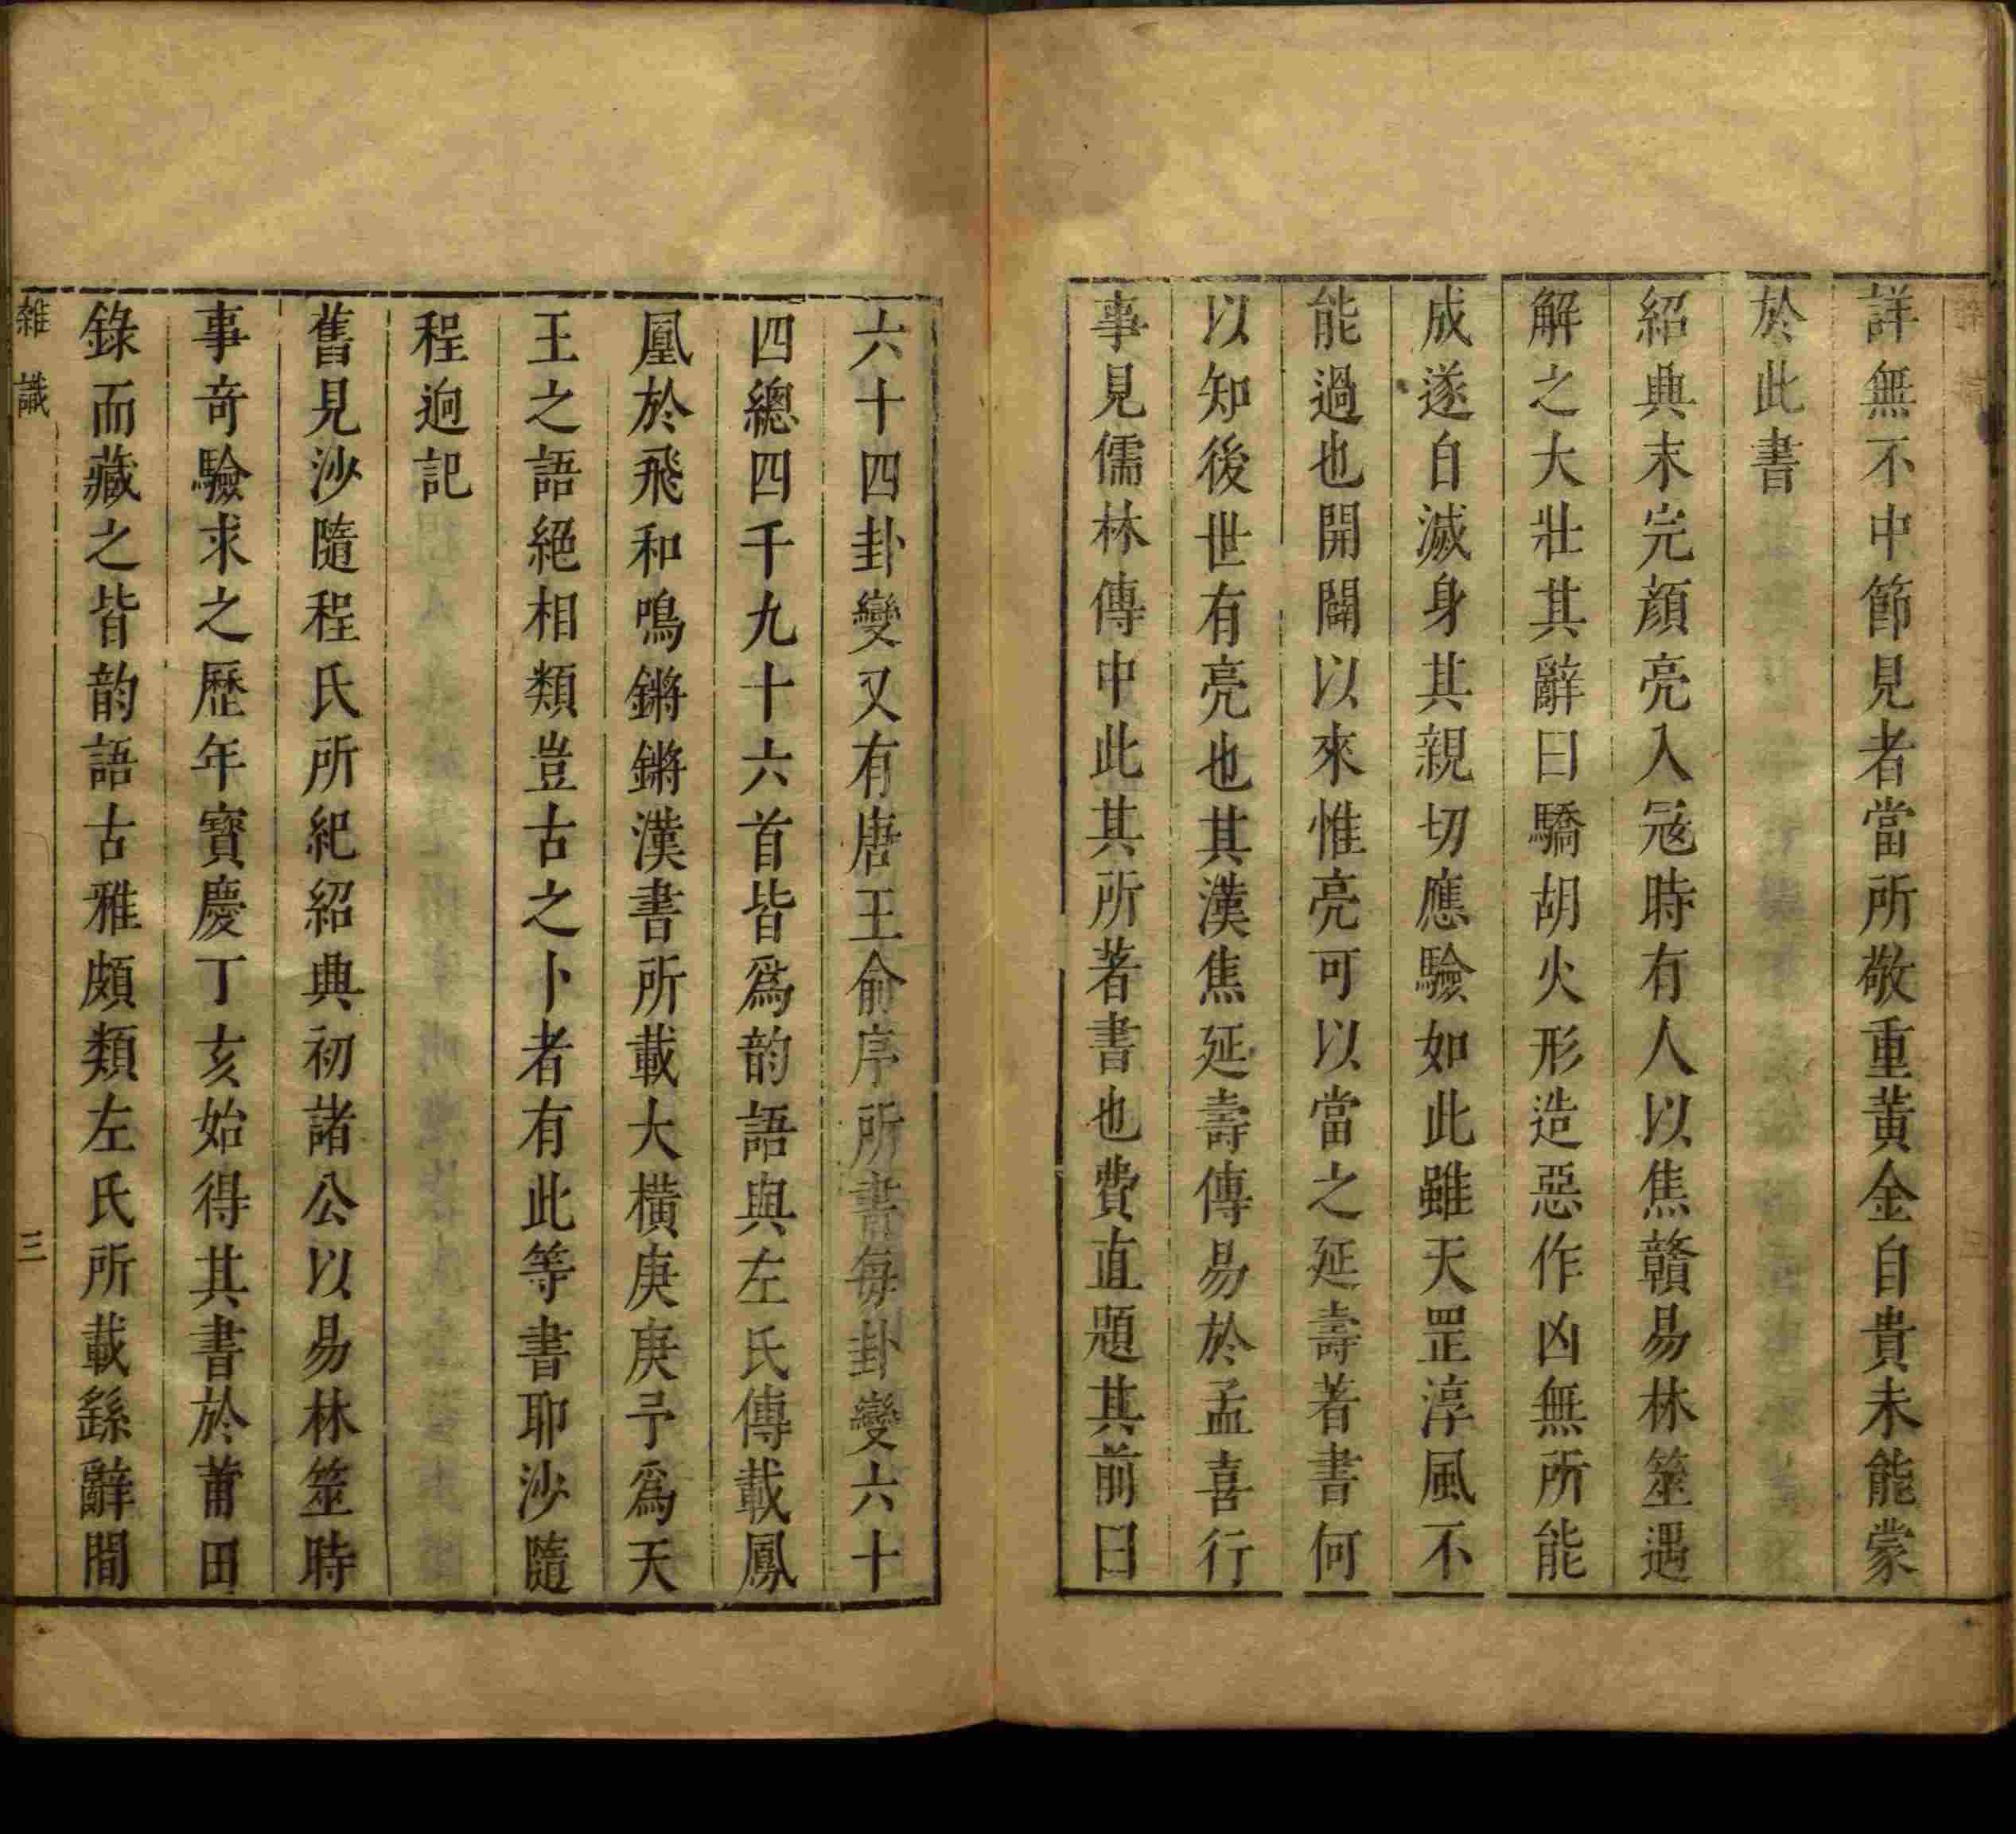 詳無不中節見者當所敬重黃金自貴未能蒙
於此書
紹興末完顔亮入冦時有人以焦贛易林筮遇
解之大壯其辭曰驕胡火形造惡作凶無所能
成遂自滅身其親切應驗如此雖天罡淳風不
能過也開闢以來惟亮可以當之延壽著書何
以知後世有亮也其漢焦延壽傳易於孟喜行
事見儒林傳中此其所著書也費直題其前曰
六十四卦變又有唐王俞序所書每卦變六十
四總四千九十六首皆爲韵語與左氏傳載鳳
凰於飛和鳴鏘鏘漢書所載大橫庚庚予爲天
王之語絕相類豈古之卜者有此等書耶沙隨
程迥記
舊見沙隨程氏所紀紹興初諸公以易林筮時
事奇驗求之歷年寶慶丁亥始得其書於莆田
錄而藏之皆韵語古雅頗類左氏所載繇辭間
雜識
三